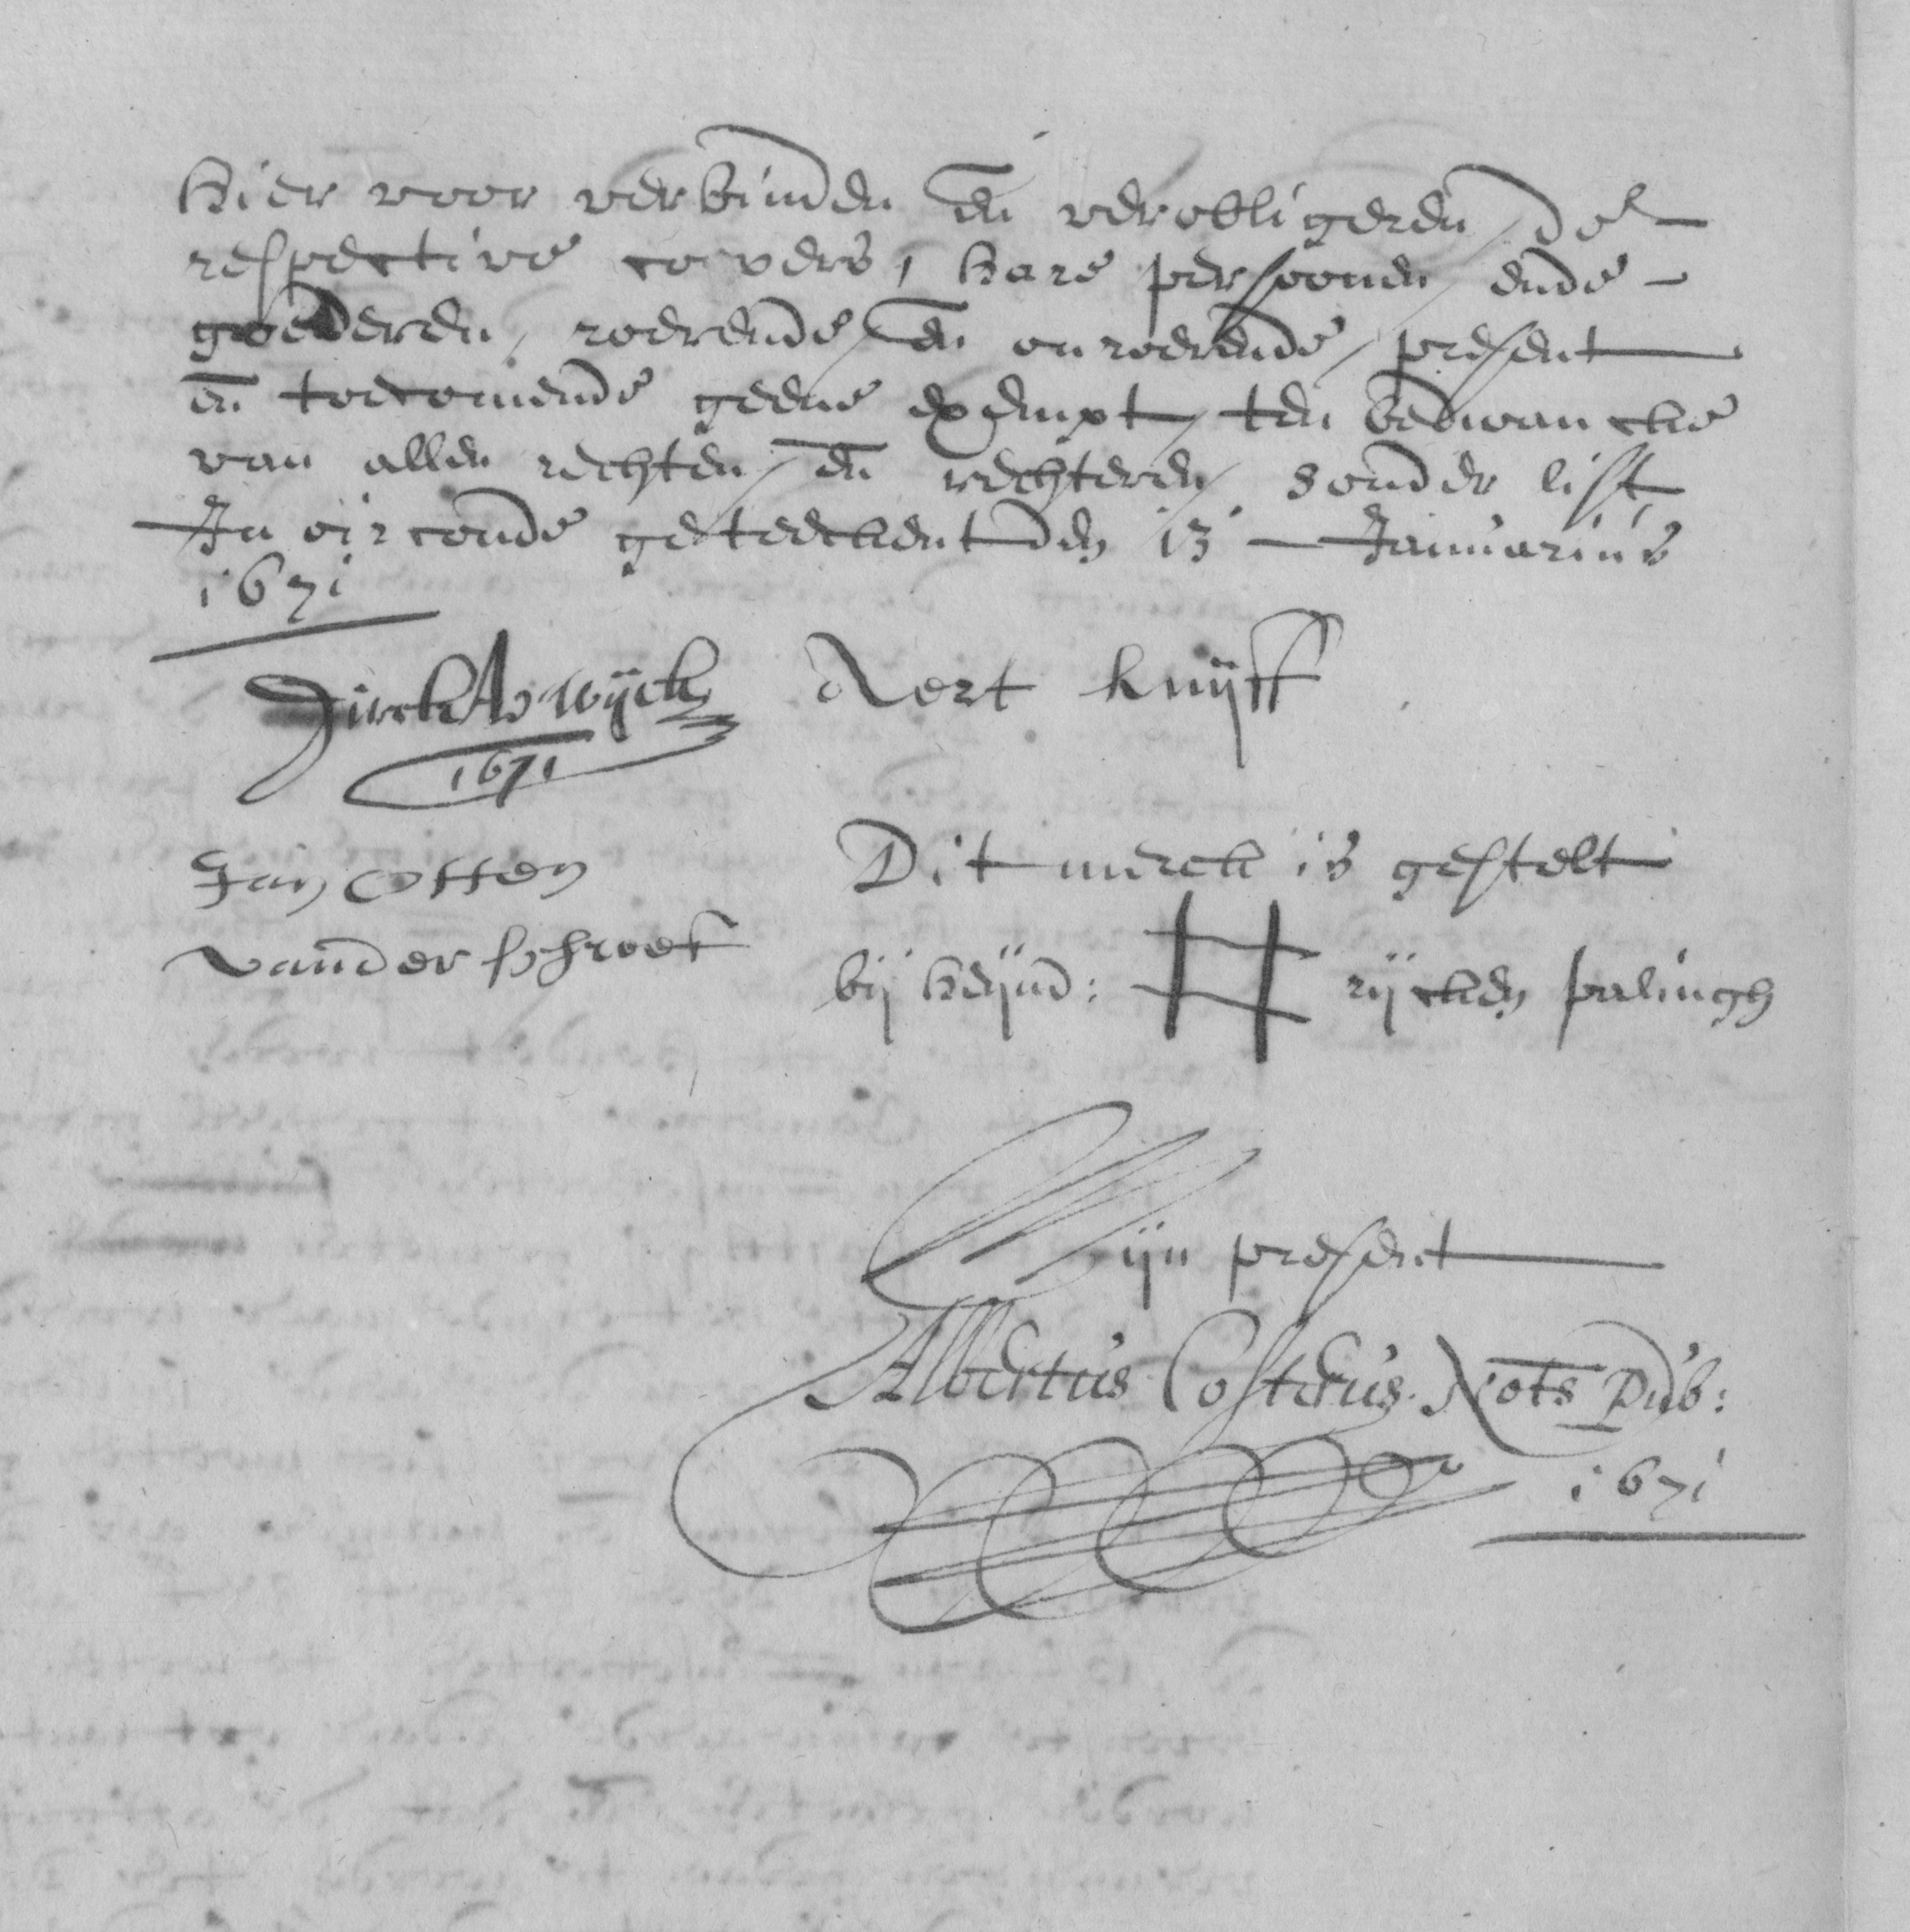 Hier voor verbinden en̄ verobligeren de
respective copers, hare persoonen ende
goederen, roerende, en̄ onroerende, present
en̄ toecomende geene exempt, ten bedwancke
van allen rechten, en̄ rechteren, sonder list
In oirconde geteeckent den 13 Januarius
1671
Dirck As wijck Aert knijff
1671
Jan Otten Dit merck is gestelt
vander schroef bij heijnd: rijcken palingh
Mijn present
Albertus Costerus Nots Pub:
1671